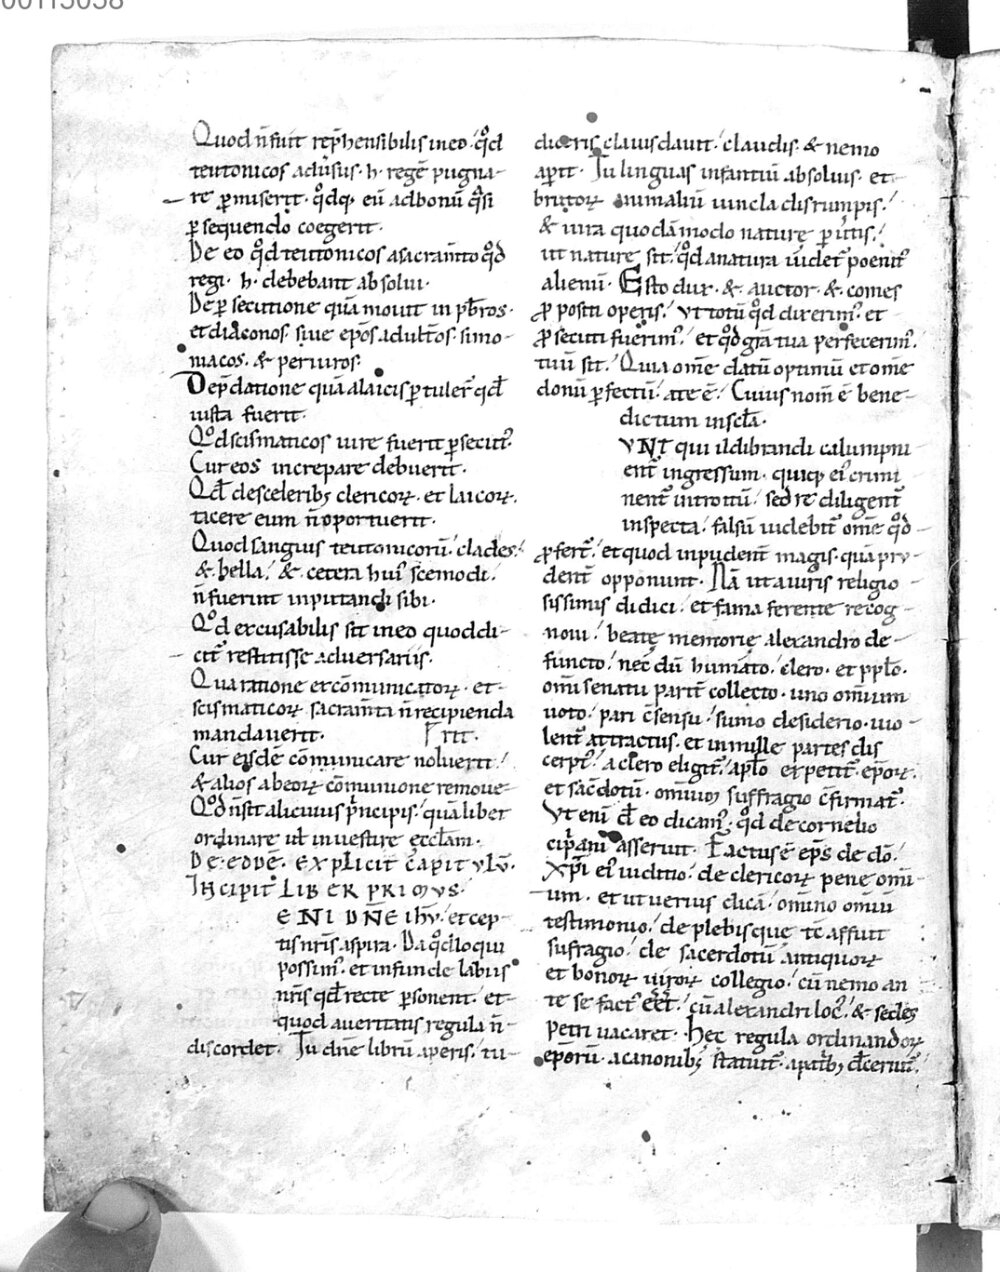 00113038
Quod n̄ fuit rep̄hensibilis in eo · qd̓
teutonicos adu̓sus · h · regē pugna-
re p̲miserit · qd̓q; eū ad bonū q̓si
p̲sequendo coegerit ·
De eo qd̓ teutonicos a sacram̄to qd̓
regi · h · debebant absolui ·
De p̲secutione quā mouit in pb̄ros ·
et diaconos · siue ep̄os adult̓os · simo-
niacos · & periuros ·
Dep̄datione quā a laicis p̲tuler̄ qd̓
iusta fuerit ·
Qd̓ scismaticos iure fuerit p̲secut᷒ ·
Cur eos increpare debuerit ·
Qd̓ de sceleribꝫ clericoꝝ · et laicoꝝ ·
tacere eum n̄ oportuerit ·
Quod sanguis teutonicorū / clades /
& bella / & cetera hui᷒scemodi /
n̄ fuerint inputandi sibi ·
Qd̓ excusabilis sit in eo quod di-
cit̄ restitisse aduersariis ·
Qua ratione excōmunicatoꝝ · et
scismaticoꝝ sacram̄ta n̄ recipienda
mandauerit ·
Cur eisdē cōmunicare noluerit /
& alios ab eoꝝ cōmunione remoue-
Qd̓ n̄ sit alicuius p̓ncipis / quālibet
ordinare ul̄ inuestire eccl̄am ·
EXPLICIT CAPITVLV̄ ·
INCIPIT LIBER PRIMVS ·
ENI DN̄E ih̄u / et cep-
tis nr̄is aspira · Da qd̓ loqui
possim᷒ · et infunde labiis
nr̄is qd̓ recte p̲sonent · et
quod a ueritatis regula n̄
discordet · Tu dn̄e librū aperis / tu
diceris clauis dauit / claudis · & nemo
ap̲it · Tu linguas infantiū absoluis · et
brutoꝝ animaliū uincla disrumpis /
& iura quodā modo naturę p̲u̓tis /
ut naturę sit / qd̓ a natura uidet̄ poenit᷒
alienū · Esto dux · & auctor · & comes
p̲positi operis / Vt totū qd̓ dixerim᷒ · et
p̲secuti fuerim᷒ / et qd̓ gr̄a tua perfecerim᷒ /
tuū sit · Quia om̄e datū optimū et om̄e
donū p̲fectū / a te ē · Cuius nom̄ ē bene-
dictum in sc̄la ·
VNT qui ildibrandi calumpni-
ent̄ ingressum · quiq; ei᷒ crimi-
nent̄ introitū / sed re diligent̄
inspecta / falsū uidebit̄ om̄e qd̓
p̲fert̄ / et quod inpudent̄ magis · quā pru-
dent̄ opponunt · Nā ut a uiris religio-
sissimis didici / et fama ferente recog-
noui / beatę memorię alexandro de-
functo / nec dū humato / clero · et ppl̄o ·
om̄i senatu parit̄ collecto · uno om̄ium
uoto / pari c̄sensu / sum̄o desiderio · uio-
lent̄ attractus · et in mille partes dis-
cerpt᷒ / a clero eligit̄ / a ppl̄o expetit̄ · ep̄oꝝ ·
et sac̄dotū · om̄ium suffragio c̄firmat̄ ·
Vt eni de eo dicam᷒ / qd̓ de cornelio
cip̓an᷒ asseruit · Factus ē ep̄s de d̄o /
xp̄i ei᷒ iuditio / de clericoꝝ pene om̄i-
um · et ut uerius dicā / om̄ino om̄iū
testimonio / de plebis que tc̄ affuit
suffragio / de sacerdotū antiquoꝝ
et bonoꝝ uiroꝝ collegio / cū nemo an-
te se fact᷒ eēt / cū alexandri loc᷒ / & sedes
petri uacaret · Hec regula ordinandoꝝ
ep̄orū a canonibꝫ statuit̄ · a pat̓bꝫ dec̄nit̄ ·